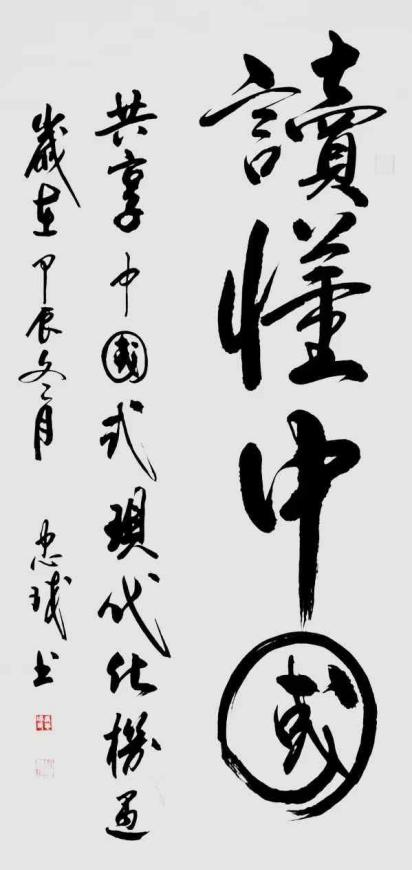 讀懂中國
共享中國式現代化機遇
歲在甲辰冬月 忠 書